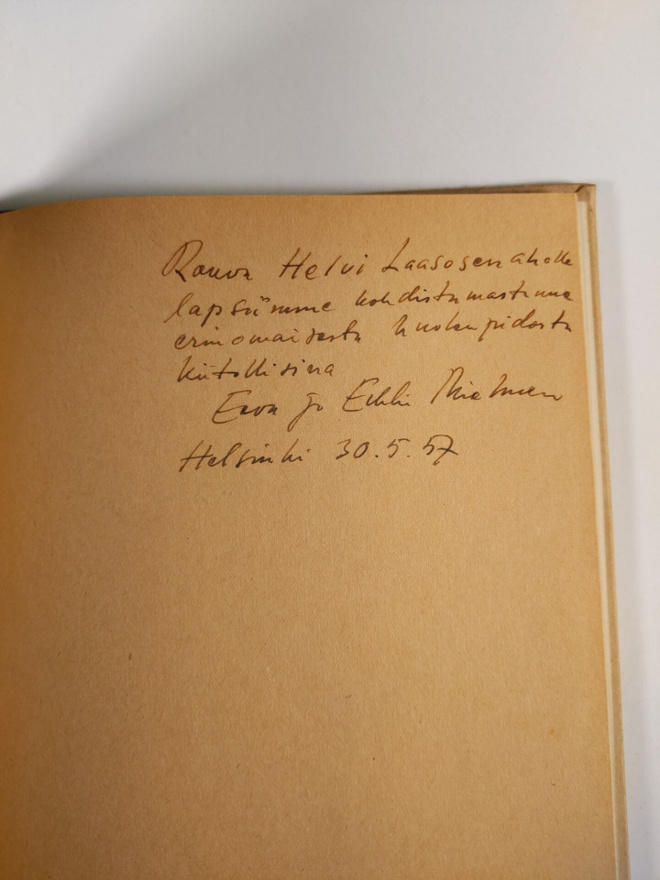 Rouva Helvi Laasosenaholle
lapsiimme kohdistamastanne
erinomaisesta huolenpidosta
kiitollisina
Eeva ja Erkki
Helsinki 30.5.57